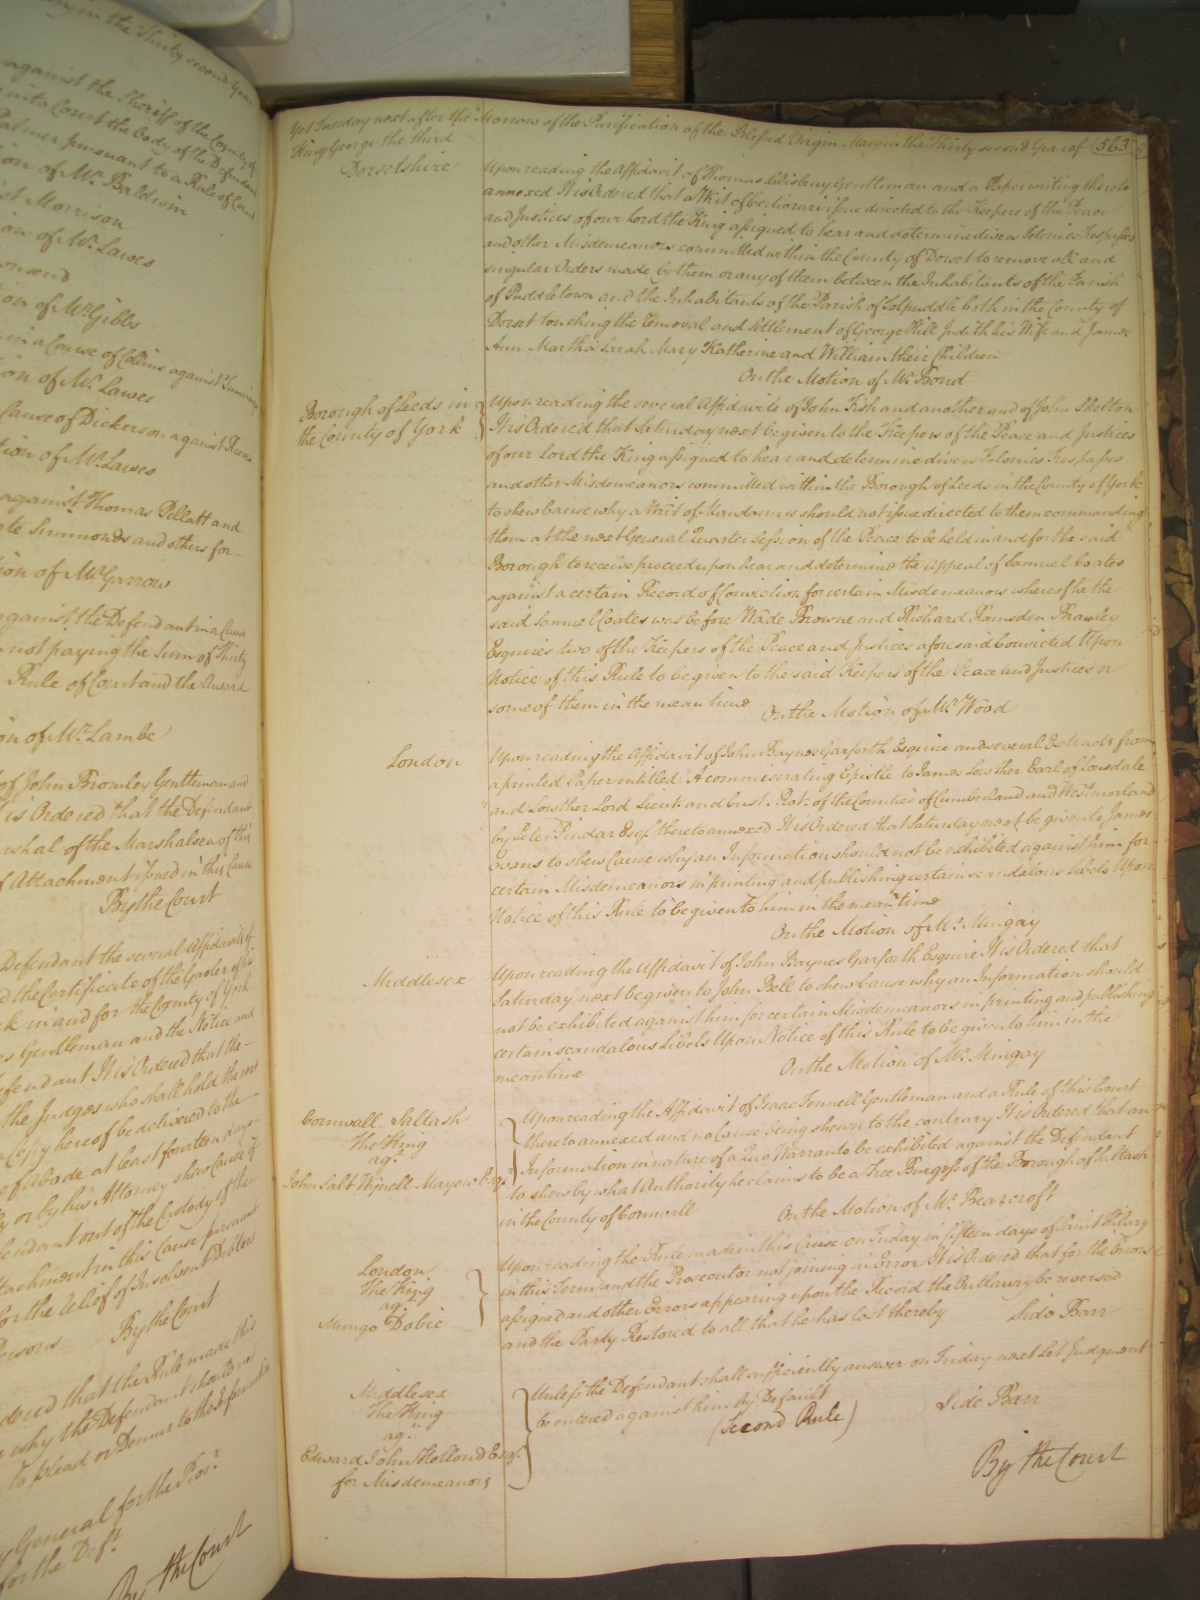 in the Thirty second Year
against the Sheriff of the County of
into Court the body of the Defendant
Palmer pursuant to a Rule of Court
ion of Mr. Baldwin
st Morrison
ion of Mr. Lawes
ownsend
ion of Mr. Gibbs
in a Cause of Collins against
ion of Mr. Lawes
Cause of Dickerson against
tion of Mr. Lawes
against Thomas Pellatt and
Simmonds and others for
ion of Mr. Garrow
against the Defendant in a Cause
not paying the Sum of Thirty
Rule of Court and the Award
on of Mr. Lambe
of John Bromley Gentleman and
is Ordered that the Defendant
rshal of the Marshalsea of this
of Attachment issued in this Cause
By the Court
Defendant the several Affidavits of
d the Certificate of the Gaoler of his
k in and for the County of York
es Gentleman and the Notice and
efendant It is Ordered that the
the Judges who shall hold the next
a Copy hereof be delivered to the
e of abode at least fourteen days
y or by his Attorney shew Cause if
endant out of the Custody of the
ttachment in this Cause pursuant
for the Relief of Insolvent Debtors
ersons By the Court
dered that the Rule made this
why the Defendant should not
to plead or Demur to the Information
y General for the Pros.r
for the Def.t
By the Court
Yet Tuesday next after the Morrow of the Purification of the Blessed Virgin Mary in the Thirty second Year of 563
King George the third
Dorsetshire
Upon reading the Affidavit of Thomas Gentleman and a Paper writing thereto
annexed It is Ordered that a Writ of Certiorari issue directed to the Keepers of the Peace
and Justices of our Lord the King assigned to hear and determine divers Felonies Trespasses
and other Misdemeanors committed within the County of Dorset to remove all and
singular Orders made by them or any of them between the Inhabitants of the Parish
of Puddletown and the Inhabitants of the Parish of Tolpuddle both in the County of
Dorset touching the removal and Settlement of George Hill Judith his Wife and James
Ann Martha Sarah Mary Katherine and William their Children
On the Motion of Mr. Bond
Borough of Leeds in
the County of York
Upon reading the several Affidavits of John Fish and another and of John Skelton
It is Ordered that Saturday next be given to the Keepers of the Peace and Justices
of our Lord the King assigned to hear and determine divers Felonies Trespasses
and other Misdemeanors committed within the Borough of Leeds in the County of York
to shew Cause why a Writ of Mandamus should not issue directed to them commanding
them at the next General Quarter Session of the Peace to be held in and for the said
Borough to receive proceed upon hear and determine the Appeal of Samuel Coates
against a certain Record of Conviction for certain Misdemeanors whereof he the
said Samuel Coates was before Wade Browne and Richard Ramsden Bramley
Esquires two of the Keepers of the Peace and Justices aforesaid Convicted Upon
Notice of this Rule to be given to the said Keepers of the Peace and Justices or
some of them in the mean time On the Motion of Mr. Wood
London
Upon reading the Affidavit of John Baynes Garforth Esquire and several Extracts from
a printed Paper intitled "A commiserating Epistle to James Lowther Earl of Lonsdale
and Lowther Lord Lieut. and Cust. Rot: of the Counties of Cumberland and Westmorland
by Peter Pindar Esqr. thereto annexed It is Ordered that Saturday next be given to James
Evans to shew Cause why an Information should not be exhibited against him for
certain Misdemeanors in printing and publishing certain scandalous Libels Upon
Notice of this Rule to be given to him in the mean time
On the Motion of Mr. Mingay
Middlesex
Upon reading the Affidavit of John Baynes Garforth Esquire It is Ordered that
Saturday next be given to John Bell to shew Cause why an Information should
not be exhibited against him for certain Misdemeanors in printing and publishing
certain scandalous Libels Upon Notice of this Rule to be given to him in the
mean time On the Motion of Mr. Mingay
Cornwall Saltash
The King
ag.t
John Salt Wynell Mayow Esqr.
Upon reading the Affidavit of Isaac Gentleman and a Rule of this Court
thereto annexed and no Cause being shewn to the contrary It is Ordered that an
Information in nature of a Quo Warranto be exhibited against the Defendant
to shew by what Authority he claims to be a Free Burgess of the Borough of Saltash
in the County of Cornwall On the Motion of Mr. Bearcroft
London
The King
ag.t
Mungo Dobie
Upon reading the Rule made in this Cause on Friday in fifteen days of Saint Hilary
in this Term and the Prosecutor not joining in Error It is Ordered that for the Errors
assigned and other Errors appearing upon the Record the Outlawry be reversed
and the Party Restored to all that he has lost thereby Side Barr
Middlesex
The King
ag.t
Edward John Hollond Esqr.
for Misdemeanors
Unless the Defendant shall sufficiently answer on Friday next let Judgment
be entered against him By Default Side Barr
(Second Rule)
By the Court